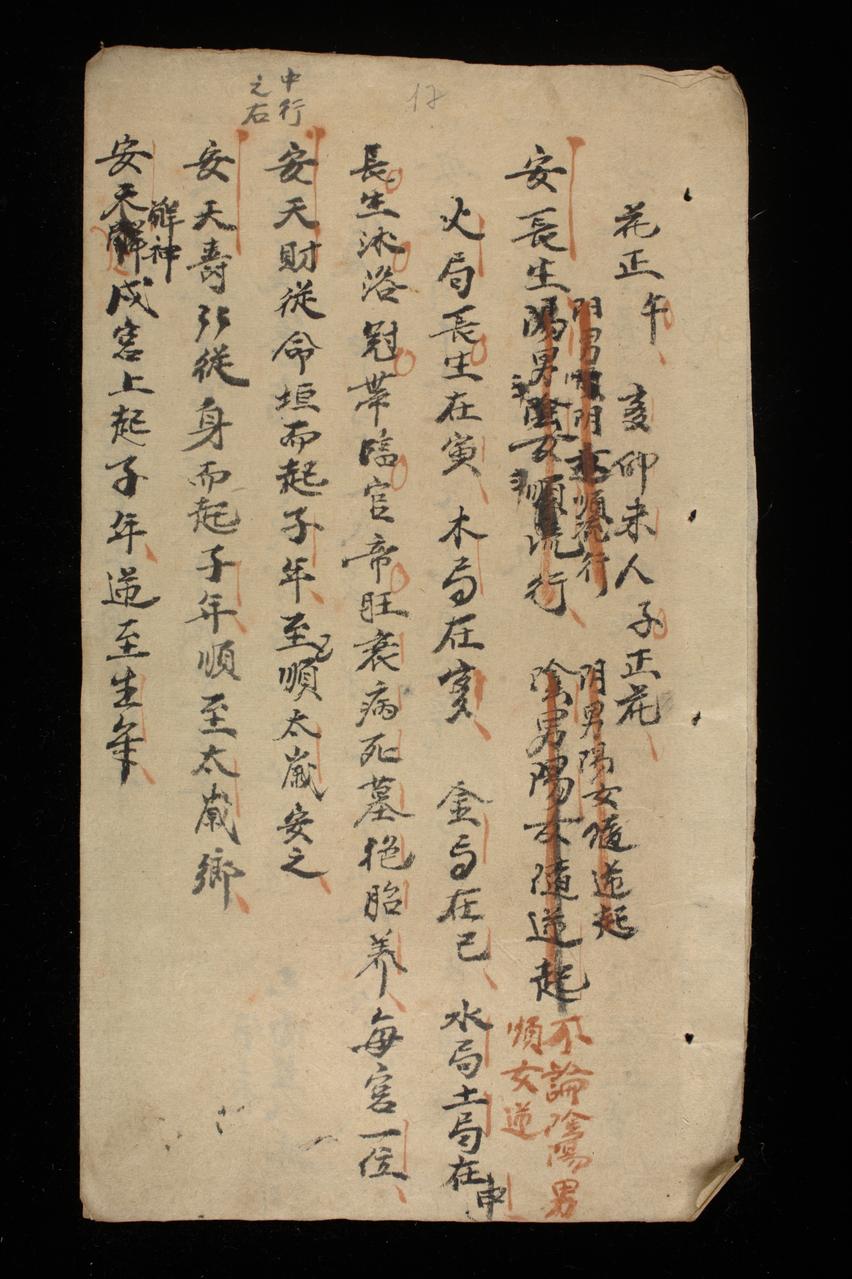 花正午 亥卯未人子正花
阴男阴女順流行 阴男陽女隨逆起
安長生陽男陰女順流行 陰男陽女隨逆起
不論陰陽男
順女逆
火局長生在寅 木局在亥 金局在已 水局土局在申
長生沐浴冠帶臨官帝旺衰病死墓绝胎养每宮一位
安天財從命垣而起子年至順太歲安之
安天壽 從身而起子年順至太歲鄉
安天解戌宮上起子年逆至生年
解神
中行
之右
17